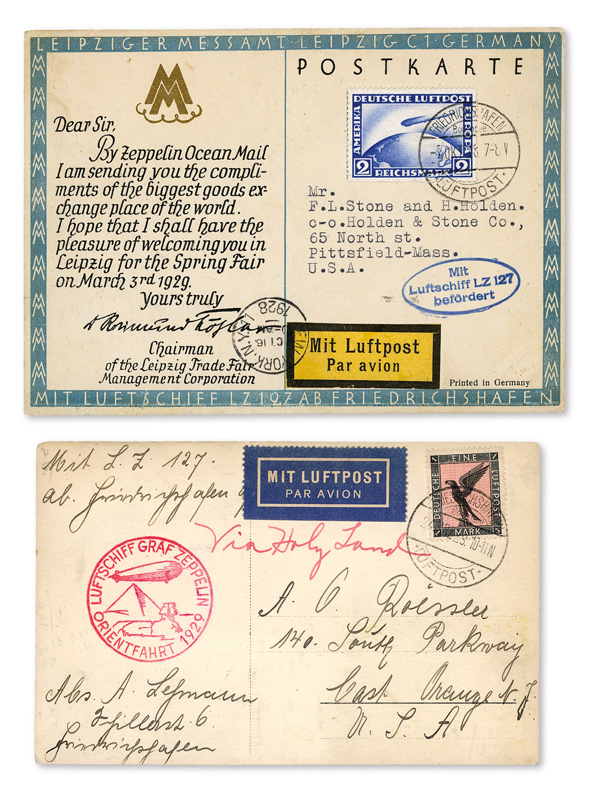 LEIPZIGER MESSAMT LEIPZIG C1 GERMANY
MM
POSTKARTE
Dear Sir,
By Zeppelin Ocean Mail
I am sending you the compli-
ments of the biggest goods ex-
change place of the world.
I hope that I shall have the
pleasure of welcoming you in
Leipzig for the Spring Fair
on March 3rd 1929.
Yours truly
Chairman
of the Leipzig Trade Fair
Management Corporation
DEUTSCHE LUFTPOST
AMERIKA
EUROPA
2 REICHSM 2
FRIEDRICHSHAFEN
7-8 V
LUFTPOST
Mr.
F.L.Stone and H.Holden.
c-o.Holden & Stone Co.,
65 North st.
Pittsfield-Mass.
U.S.A.
Mit
Luftschiff LZ 127
befördert
NEW YORK, N.Y.
1928
Mit Luftpost
Par avion
Printed in Germany
MIT LUFTSCHIFF LZ 127 AB FRIEDRICHSHAFEN
Mit L. Z. 127.
ab. Friedrichshafen
MIT LUFTPOST
PAR AVION
1 EINE 1
DEUTSCHE
LUFTPOST
MARK
10-11 N
LUFTPOST
Via Holy Land
LUFTSCHIFF GRAF ZEPPELIN
ORIENTFAHRT 1929
A. O. Roessler
140. South Parkway
East Orange N. J.
U. S. A
Abs. A. Lehmann
6
Friedrichshafen